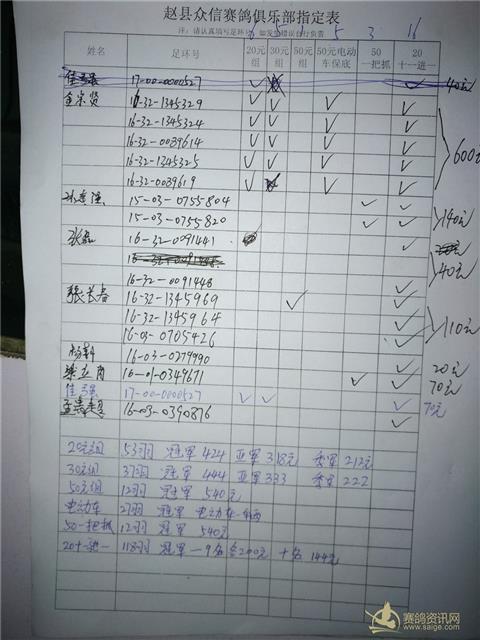 赵县众信赛鸽俱乐部指定表
注：请认真填写足环号，如发生错误自行负责
5 3 16
姓名 足环号 20元组 30元组 50元组 50元电动车保底 50一把抓 20十一进一
17-00-0000527 40元
16-32-1345329
16-32-1345324
16-32-0089614 600元
16-32-1345325
16-32-0089619
15-03-0755804
15-03-0755820 140元
张磊 16-32-0091441
16-32-0091448 40元
张长春 16-32-1345969
16-32-1345964 110元
16-03-0705426
杨科 16-03-0279990 20元
16-01-0349671 70元
17-00-0000527 70元
16-03-0390876
20元组 53羽 冠军 424 亚军 318元 季军 212元
30元组 37羽 冠军 444 亚军 333 季军 222
50元组 12羽 冠军 540元
电动车 27羽 冠军 电动车一辆
50一把抓 12羽 冠军 540元
20十一进一 118羽 冠军一9名各200元 十名 144元
赛鸽资讯网
www.saige.com